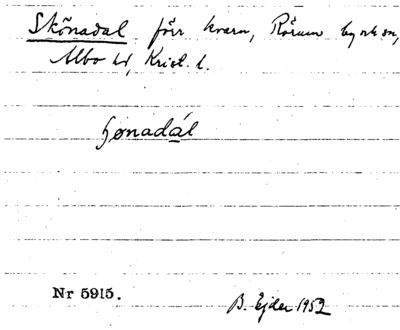 Skönadal förr kvarn, Rörum by och sn,
Albo hd, Krist. l.
ʃønadál
Nr 5915.
B. Ejder 1952